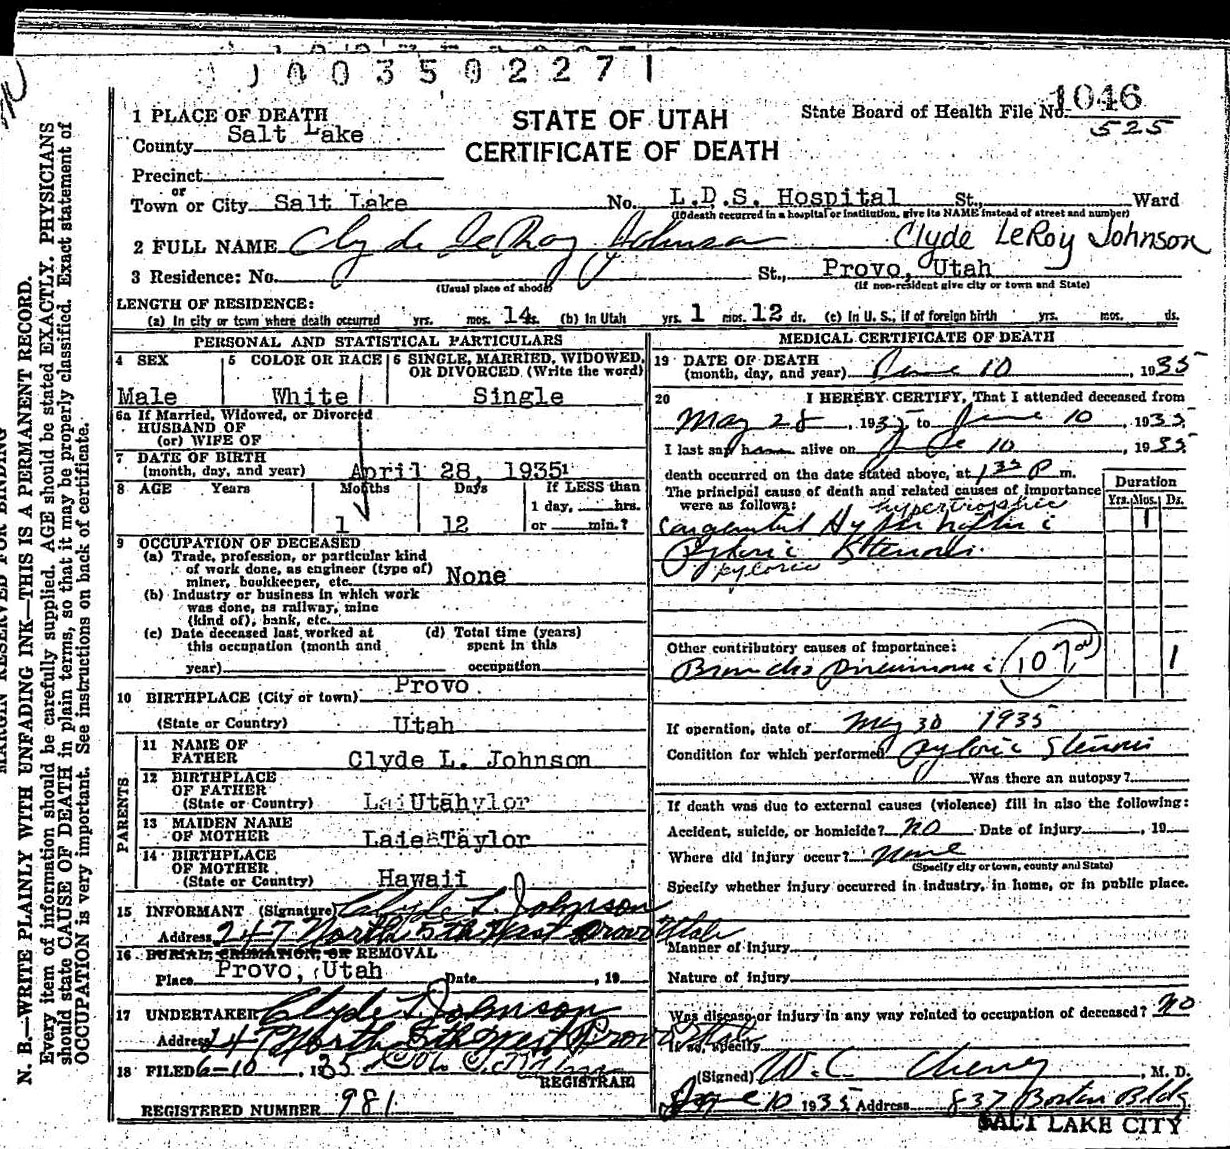 1003502271
1 PLACE OF DEATH
STATE OF UTAH
CERTIFICATE OF DEATH
State Board of Health File No. 1046
525
County Salt Lake
Precinct
or
Town or City Salt Lake No. L.D.S. Hospital St., Ward
(If death occurred in a hospital or institution, give its NAME instead of street and number)
2 FULL NAME Clyde LeRoy Johnson Clyde LeRoy Johnson
3 Residence: No. St., Provo, Utah
(Usual place of abode) (If non-resident give city or town and State)
LENGTH OF RESIDENCE:
(a) In city or town where death occurred yrs. mos. 14 ds. (b) In Utah yrs. 1 mos. 12 ds. (c) In U. S., if of foreign birth yrs. mos. ds.
PERSONAL AND STATISTICAL PARTICULARS
4 SEX 5 COLOR OR RACE 6 SINGLE, MARRIED, WIDOWED, OR DIVORCED (Write the word)
Male White Single
6a If Married, Widowed, or Divorced
HUSBAND OF
(or) WIFE OF
7 DATE OF BIRTH
(month, day, and year) April 28, 1935
8 AGE Years Months Days If LESS than
1 day, hrs.
1 12 or min.?
9 OCCUPATION OF DECEASED
(a) Trade, profession, or particular kind
of work done, as engineer (type of)
miner, bookkeeper, etc. None
(b) Industry or business in which work
was done, as railway, mine
(kind of), bank, etc.
(c) Date deceased last worked at (d) Total time (years)
this occupation (month and spent in this
year) occupation
10 BIRTHPLACE (City or town) Provo
(State or Country) Utah
PARENTS
11 NAME OF
FATHER Clyde L. Johnson
12 BIRTHPLACE
OF FATHER
(State or Country) Utah
13 MAIDEN NAME
OF MOTHER Laie Taylor
14 BIRTHPLACE
OF MOTHER
(State or Country) Hawaii
15 INFORMANT (Signature) Clyde L. Johnson
Address 247 North 5th West Provo Utah
16 BURIAL, CREMATION, OR REMOVAL
Place Provo, Utah Date , 19
17 UNDERTAKER Clyde L Johnson
Address 247 North 5th West Provo Utah
18 FILED 6-10 , 1935
REGISTRAR
REGISTERED NUMBER 981
MEDICAL CERTIFICATE OF DEATH
19 DATE OF DEATH
(month, day, and year) June 10 , 1935
20 I HEREBY CERTIFY, That I attended deceased from
May 28 , 1935, to June 10 , 1935
I last saw him alive on June 10 , 1935
death occurred on the date stated above, at 1 35 P m.
The principal cause of death and related causes of importance
were as follows:
Duration
Yrs. Mos. Ds.
hypertrophic
Congenital Hypertrophic 1
Pyloric Stenosis.
pyloric
Other contributory causes of importance:
Broncho Pneumonia 107 1
If operation, date of May 30 1935
Condition for which performed Pyloric Stenosis
Was there an autopsy?
If death was due to external causes (violence) fill in also the following:
Accident, suicide, or homicide? NO Date of injury , 19
Where did injury occur? None
(Specify city or town, county and State)
Specify whether injury occurred in industry, in home, or in public place.
Manner of Injury
Nature of Injury
Was disease or injury in any way related to occupation of deceased? NO
If so, specify
(Signed) W. C. Cheney , M. D.
June 10 1935 Address 837 Boston Bldg
SALT LAKE CITY
MARGIN RESERVED FOR BINDING
N. B.—WRITE PLAINLY WITH UNFADING INK—THIS IS A PERMANENT RECORD.
Every item of information should be carefully supplied. AGE should be stated EXACTLY. PHYSICIANS
should state CAUSE OF DEATH in plain terms, so that it may be properly classified. Exact statement of
OCCUPATION is very important. See instructions on back of certificate.